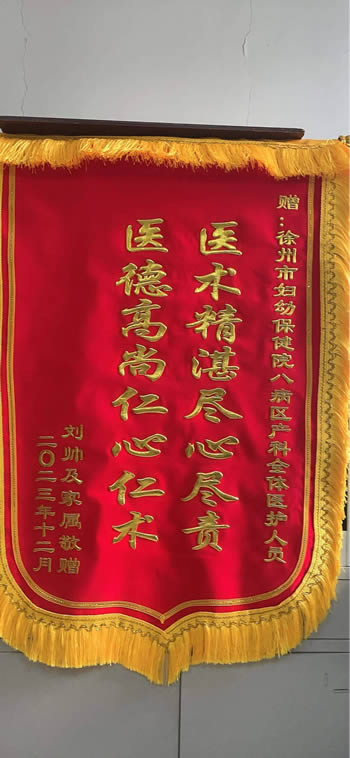 赠:徐州市妇幼保健院八病区产科全体医护人员
医术精湛尽心尽责
医德高尚仁心仁术
刘帅及家属敬赠
二〇二三年十二月